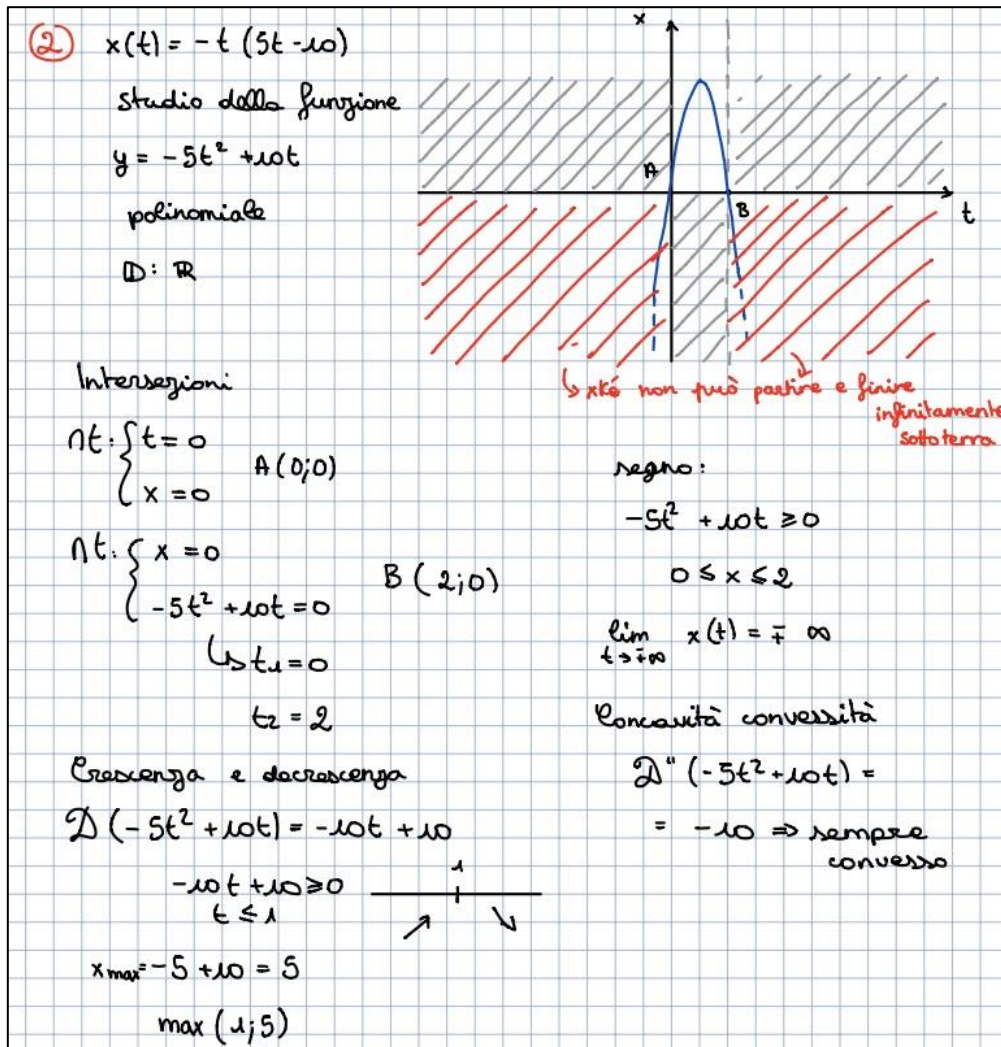 2 x(t) = -t (5t - 10)
studio della funzione
y = -5t² + 10t
polinomiale
D: ℝ
x
A
B
t
↳ xké non può partire e finire
infinitamente
sottoterra
Intersezioni
∩t: { t = 0
x = 0
A (0;0)
∩t: { x = 0
-5t² + 10t = 0
B (2;0)
↳ t1 = 0
t2 = 2
segno:
-5t² + 10t ≥ 0
0 ≤ x ≤ 2
lim x(t) = ∓ ∞
t→∓∞
Crescenza e decrescenza
D (-5t² + 10t) = -10t + 10
-10t + 10 ≥ 0
t ≤ 1
1
↗ ↘
xmax = -5 + 10 = 5
max (1;5)
Concavità convessità
D" (-5t² + 10t) =
= -10 ⇒ sempre
convesso